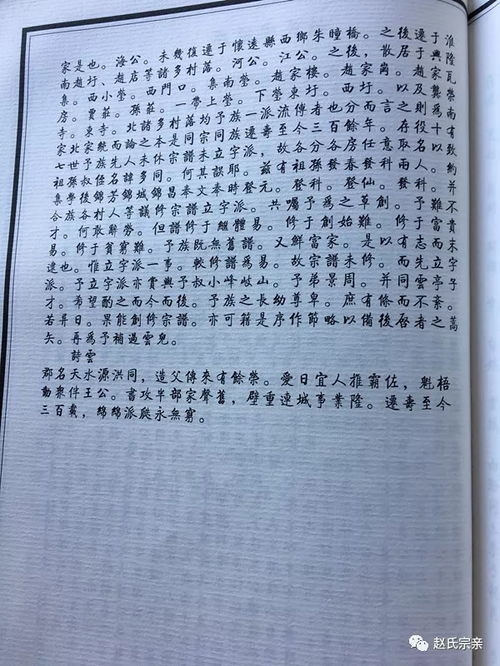 家是也。海公。未幾復遷于懷遠縣西鄉朱疃橋。之後遷于淮
南趙圩、趙店等諸多村落。河公。江公。之後，散居于興隆
集。西小營。西門口。集南營。趙家樓。趙家崗。趙家瓦
房。賈莊。孫莊。一帶上營。下營東圩。西圩。以及龔榮
寺。東寺。北諸多村落均予族一派流傳者也分而言之則為南
家北家統而論之本是同宗同族遷壽至今三百餘年。存役十有
七世予族先人未休宗譜未立字派，故各分各房任意取名以致
祖孫叔侄名諱多同。何其誤耶。茲有祖孫發春發科兩人。約
集學後錦芳錦城錦昌泰文泰時登元。登科。登仙。登科。并
合族各村人等議修宗譜立字派。共囑予為之草創。予雖不
才。何敢辭勞。但譜修于組體易。修于創始難。修于富貴
易。修于貧窮難。予族既無舊譜。又鮮富家。是以有志而未
逮也。惟立字派一事。較修譜為易。故宗譜未修。而先立字
派。予立字派亦貫與予叔小峰岐山。予弟景周。并同雲亭子
才。希望酌之而今而後。予族之長幼尊卑。庶有條而不紊。
若昇日。果能創修宗譜。亦可籍是序作節略以備後啓者之蒿
矢。再為予補過雲兒。
詩雲
郡名天水源洪同，造父傳來有餘榮。愛日宜人推霸佐，魁梧
動眾伴王公。書攻半部家聲舊，壁重連城事業隆。遷壽至今
三百載，綿綿派嶷永無窮。
赵氏宗亲